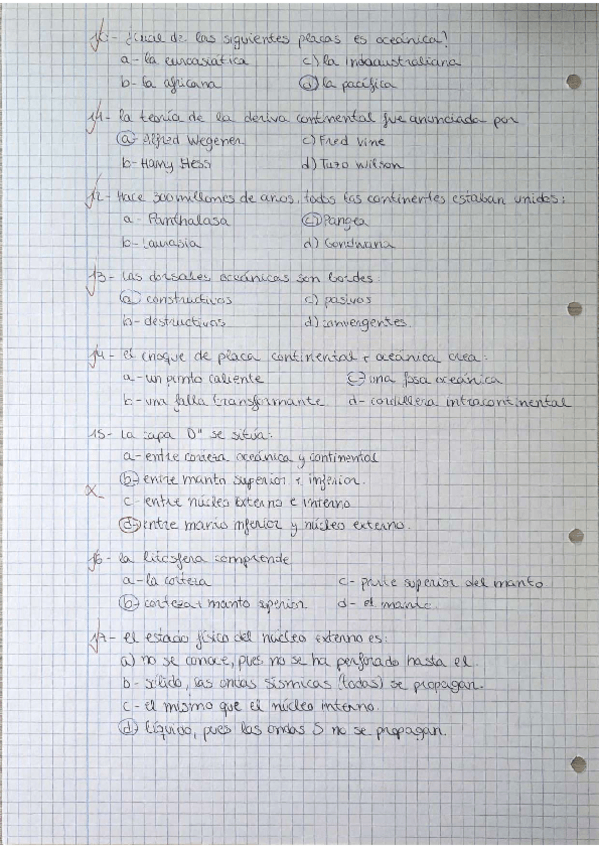 10- ¿Cuál de las siguientes placas es oceánica?
a- la euroasiática c) la indoaustraliana
b- la africana d) la pacífica
11- la teoría de la deriva continental fue anunciada por
a- Alfred Wegener c) Fred Vine
b- Harry Hess d) Tuzo Wilson
12- Hace 300 millones de años, todos los continentes estaban unidos:
a- Panthalasa c) Pangea
b- Laurasia d) Gondwana
13- las dorsales oceánicas son bordes:
a) constructivos c) pasivos
b- destructivos d) convergentes.
14- el choque de placa continental + oceánica crea:
a- un punto caliente c- una fosa oceánica
b- una falla transformante d- cordillera intracontinental
15- la capa D" se sitúa:
a- entre corteza oceánica y continental
b- entre manto superior + inferior.
x
c- entre núcleo externo e interno
d- entre manto inferior y núcleo externo.
16- la litosfera comprende
a- la corteza c- parte superior del manto
b- corteza + manto superior d- el manto.
17- el estado físico del núcleo externo es:
a) no se conoce, pues no se ha perforado hasta el.
b- sólido, las ondas sísmicas (todas) se propagan.
c- el mismo que el núcleo interno.
d) líquido, pues las ondas S no se propagan.